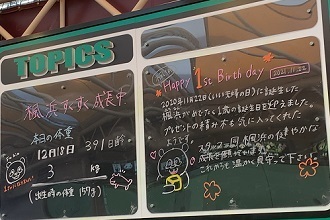 TOPICS
楓浜すくすく成長中
本日の体重
12月18日 391日齢
3 kg
(出生時の体重 157g)
Happy 1st Birthday
2021.11.22
2020年11月22日(いい夫婦の日)に誕生した
楓浜がめでたく1歳の誕生日を迎えました。
プレゼントの積み木も気に入ってくれた
ようです
スタッフ一同 楓浜の健やかな
成長を願ってます
これからも温かく見守って下さい